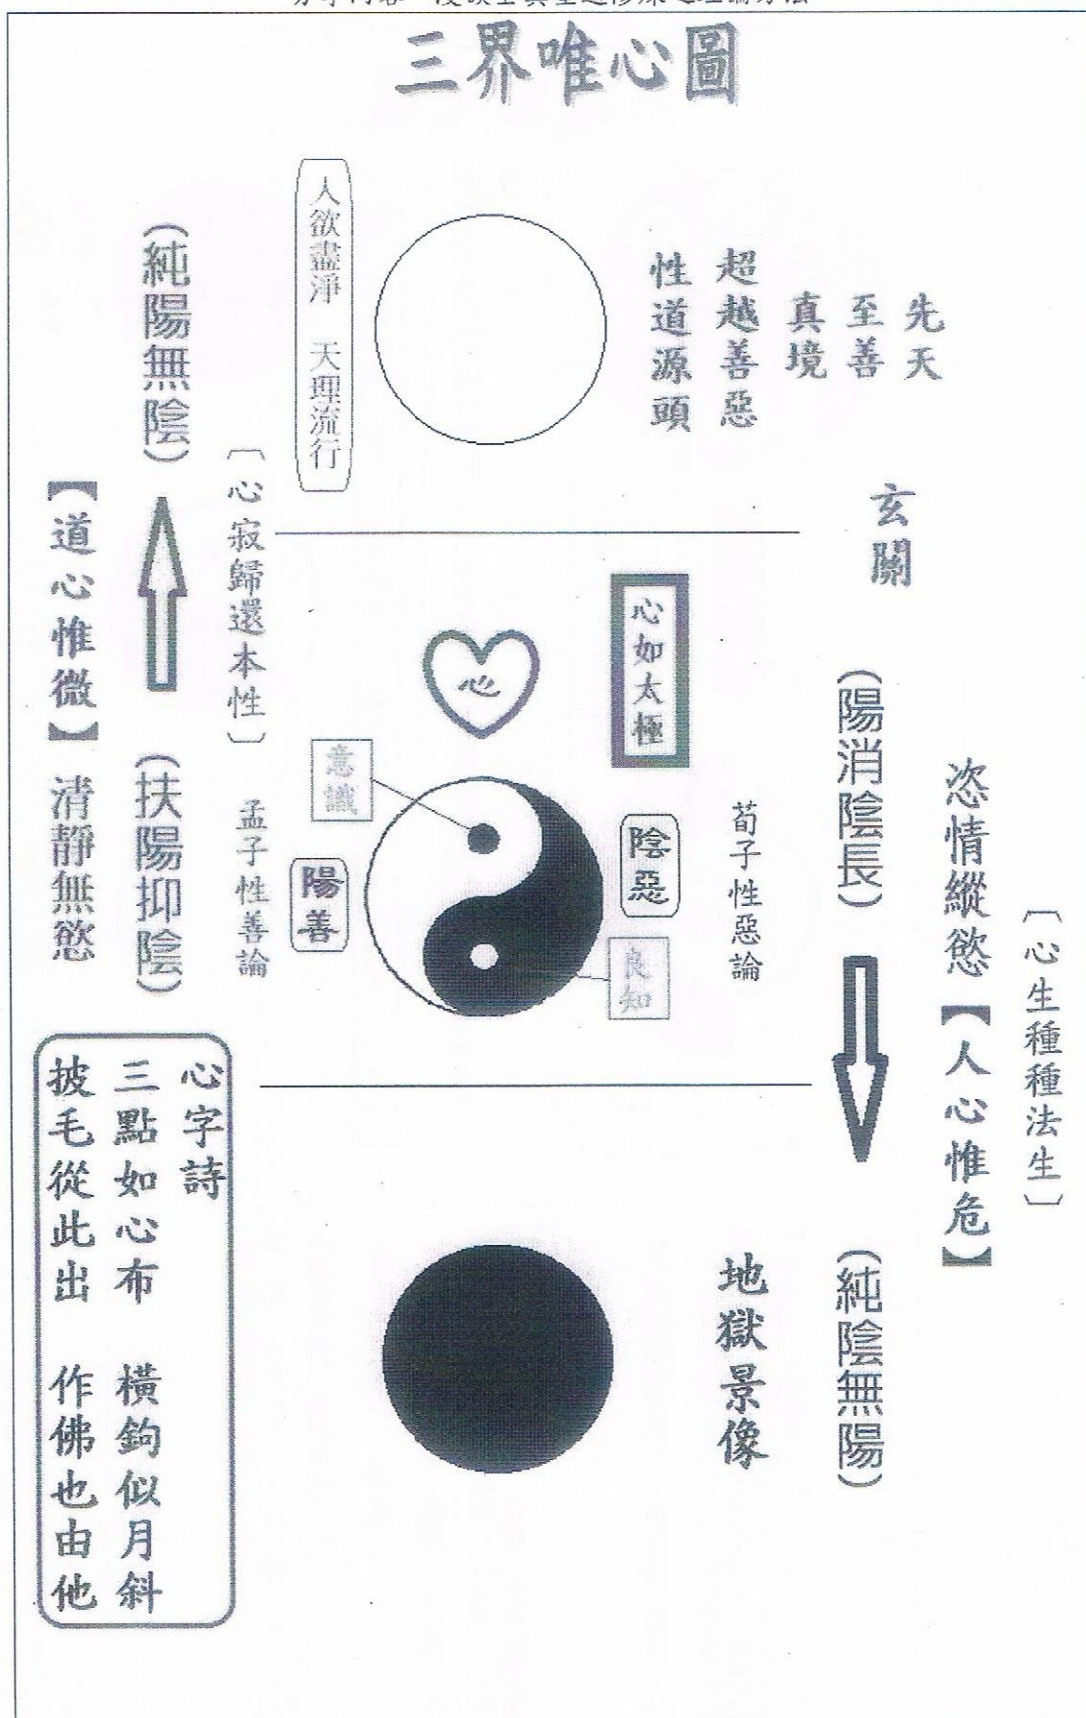 三界唯心圖
先天
至善
真境
超越善惡
性道源頭
人欲盡淨　天理流行
(純陽無陰)
玄關
〔心寂歸還本性〕
【道心惟微】清靜無慾
(扶陽抑陰)
心如太極
心
意識
陽善
孟子性善論
陰惡
良知
荀子性惡論
(陽消陰長)
恣情縱慾【人心惟危】
〔心生種種法生〕
(純陰無陽)
地獄景像
心字詩
三點如心布　橫鉤似月斜
披毛從此出　作佛也由他